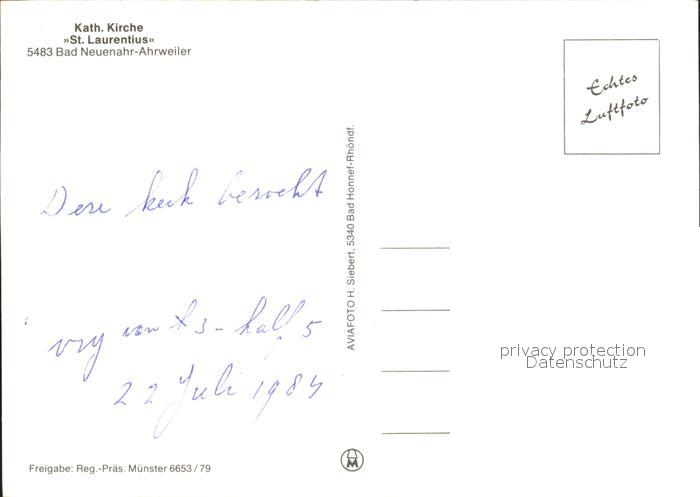 Kath. Kirche
»St. Laurentius«
5483 Bad Neuenahr-Ahrweiler
Echtes
Luftfoto
Dere kerk bezocht
van 3 - half 5
22 Juli 1984
AVIAFOTO H. Siebert, 5340 Bad Honnef-Rhöndf.
privacy protection
Datenschutz
Freigabe: Reg.-Präs. Münster 6653/79